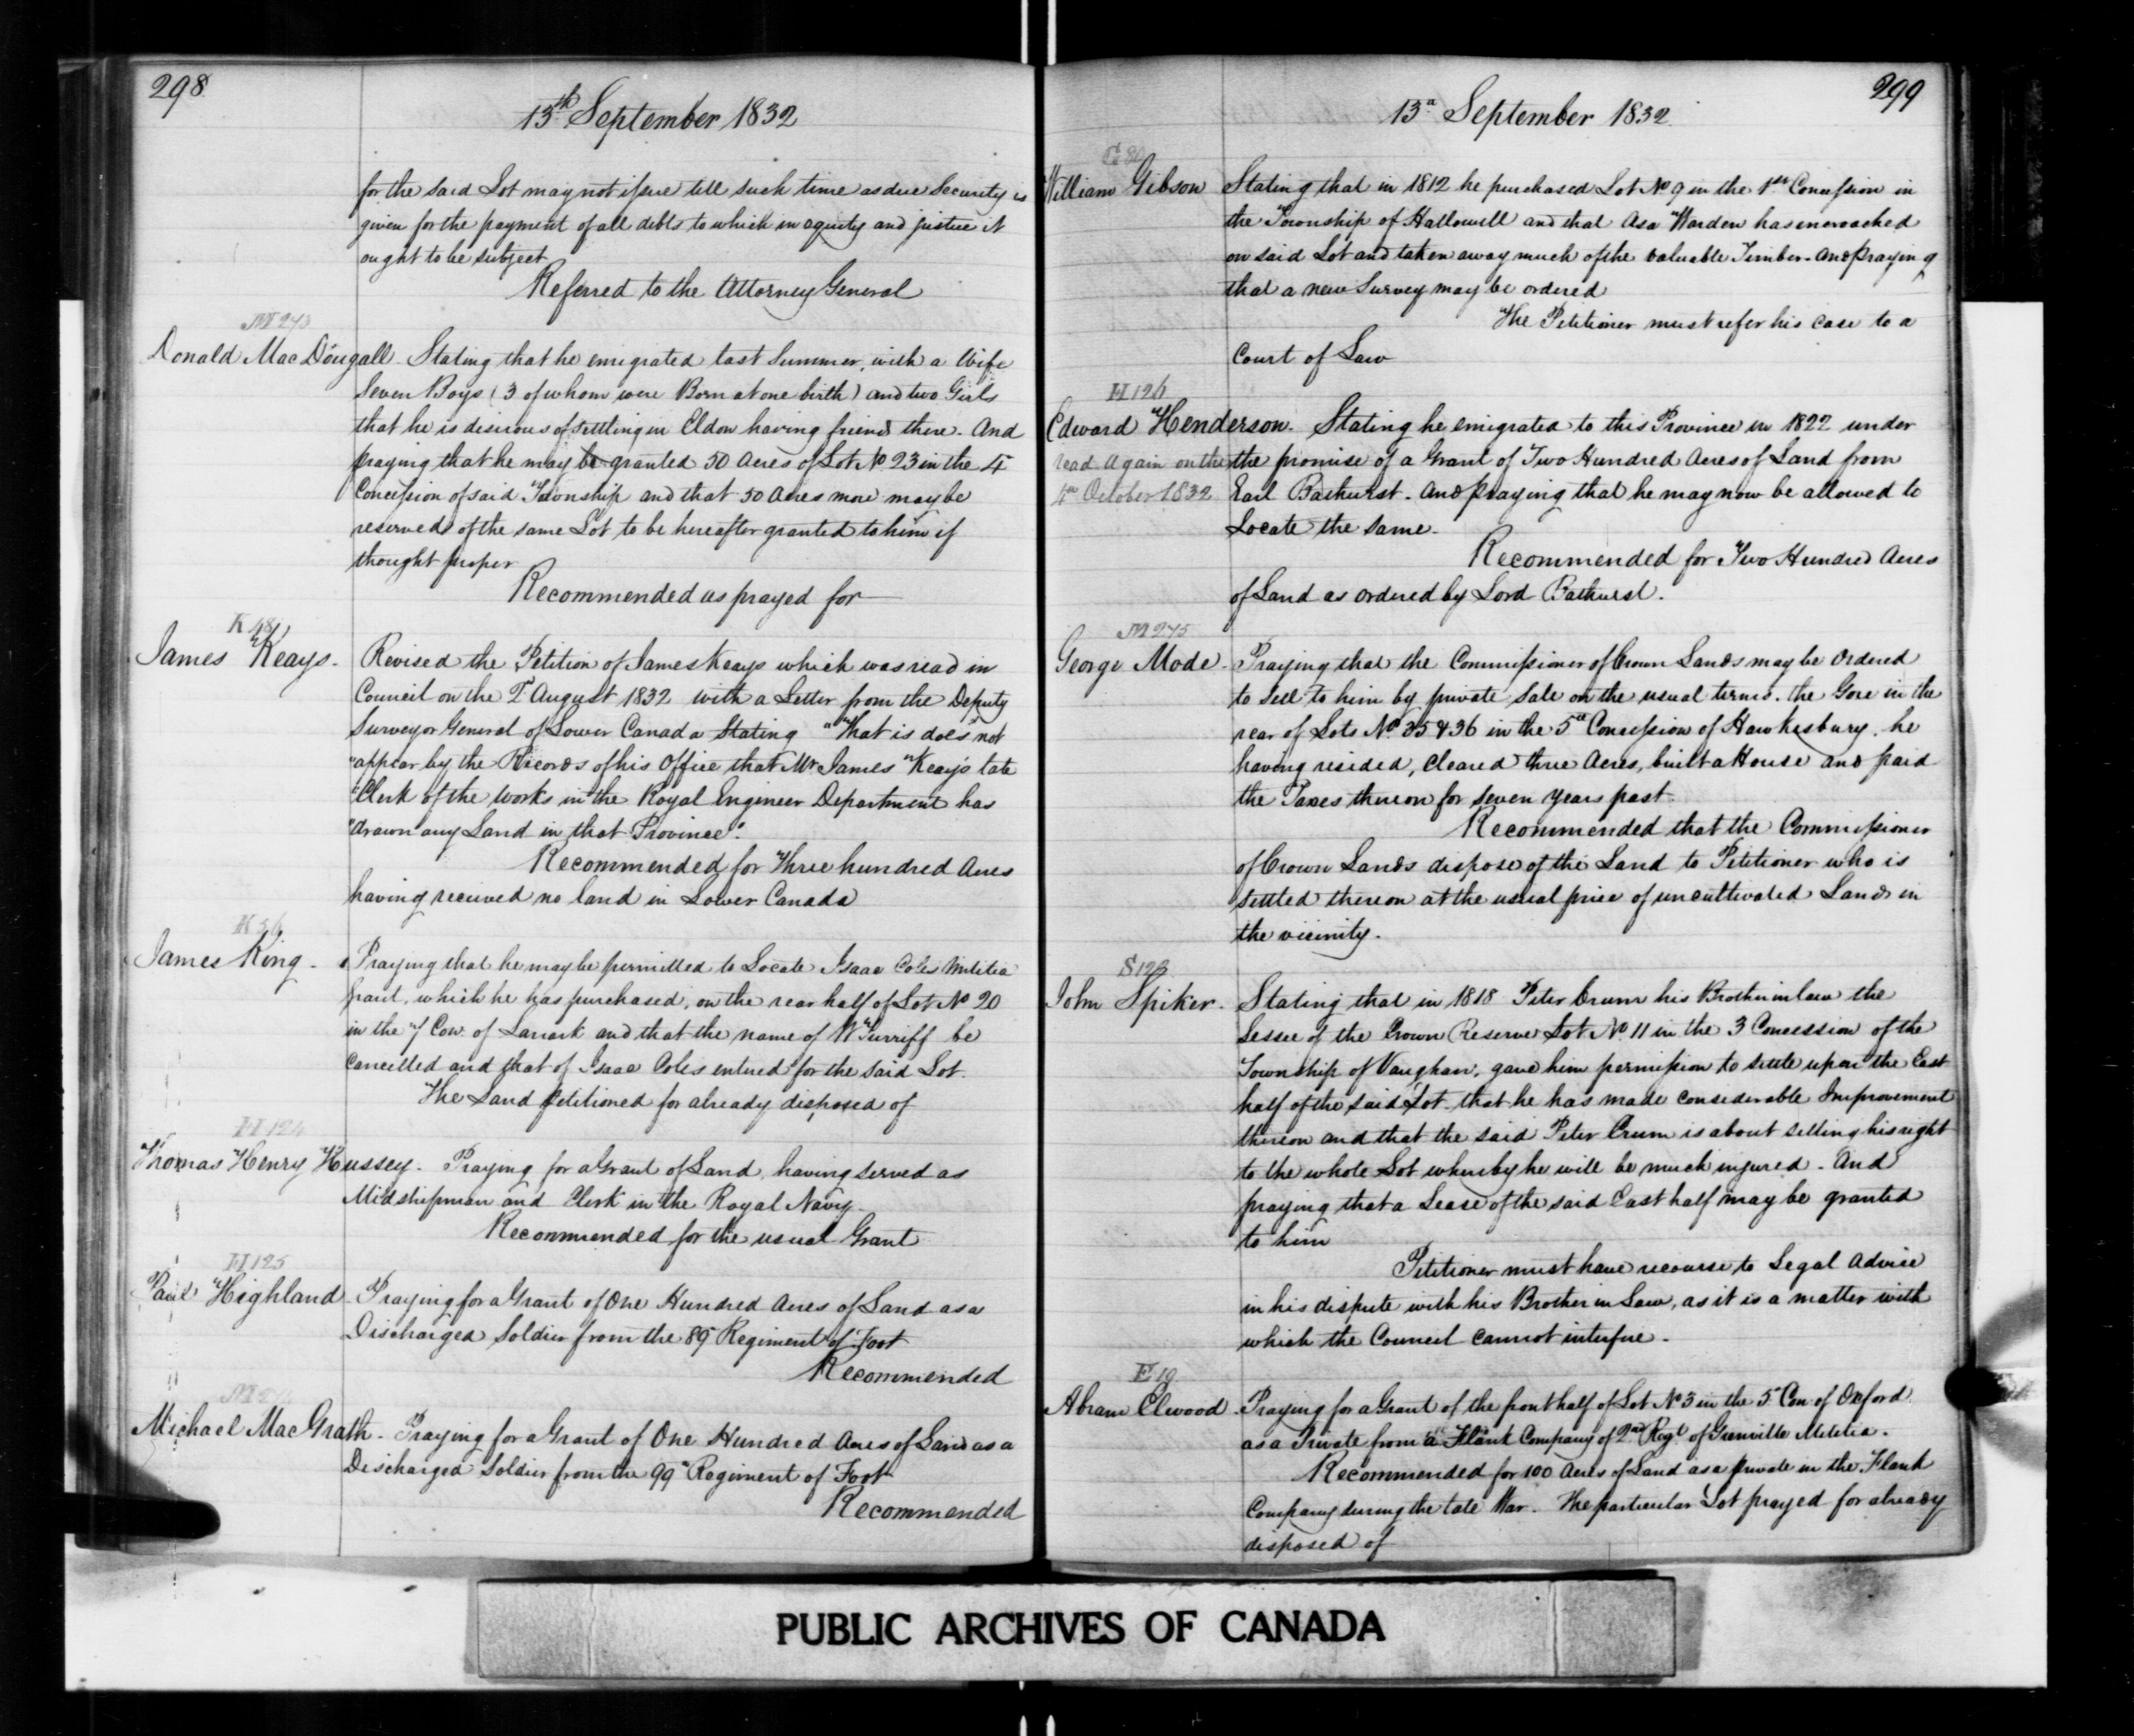 298
13th September 1832
for the said Lot may not issue till such time as due Security is
given for the payment of all debts to which in equity and justice it
ought to be subject
Referred to the Attorney General
M 273
Donald MacDougall. Stating that he emigrated last Summer, with a Wife
Seven Boys (3 of whom were Born at one birth) and two Girls
that he is desirous of settling in Eldon having friends there. And
praying that he may be granted 50 Acres of Lot No 23 in the 4
Concession of said Township and that 50 Acres more may be
reserved of the same Lot to be hereafter granted to him if
thought proper
Recommended as prayed for
K 48
James Keays. Revised the Petition of James Keays which was read in
Council on the August 1832 with a Letter from the Deputy
Surveyor General of Lower Canada Stating "That is does not
"appear by the Records of his Office that Mr James Keays late
"Clerk of the Works in the Royal Engineer Department has
"drawn any Land in that Province".
Recommended for Three hundred Acres
having received no land in Lower Canada
K 36
James King. Praying that he may be permitted to Locate Isaac Coles Militia
Grant, which he has purchased, on the rear half of Lot No 20
in the 7 Con. of Lanark and that the name of W Turriff be
Cancelled and that of Isaac Coles entered for the said Lot.
The Land petitioned for already disposed of
H 124
Thomas Henry Hussey. Praying for a Grant of Land, having served as
Midshipman and Clerk in the Royal Navy.
Recommended for the usual Grant
H 125
Paul Highland Praying for a Grant of One Hundred Acres of Land as a
Discharged Soldier from the 89 Regiment of Foot
Recommended
Michael MacGrath. Praying for a Grant of One Hundred Acres of Land as a
Discharged Soldier from the 99th Regiment of Foot
Recommended
299
13th September 1832
William Gibson Stating that in 1812 he purchased Lot No 9 in the 1st Concession in
the Township of Hallowell and that Asa Warden has encroached
on said Lot and taken away much of the valuable Timber. And Praying
that a new Survey may be ordered
The Petitioner must refer his case to a
Court of Law
H 126
Edward Henderson. Stating he emigrated to this Province in 1822 under
read again on the the promise of a Grant of Two Hundred Acres of Land from
4th October 1832 Earl Bathurst. And Praying that he may now be allowed to
Locate the same.
Recommended for Two Hundred Acres
of Land as ordered by Lord Bathurst.
M 275
George Mode. Praying that the Commissioner of Crown Lands may be Ordered
to Sell to him by private Sale on the usual terms. the Gore in the
rear of Lots No. 35 & 36 in the 5th Concession of Hawkesbury, he
having resided, Cleared three Acres, built a House and paid
the Taxes thereon for Seven Years past.
Recommended that the Commissioner
of Crown Lands dispose of the Land to Petitioner who is
settled thereon at the usual price of uncultivated Lands in
the vicinity.
S 123
John Spiker. Stating that in 1818 Peter Crum his Brother in law the
Lessee of the Crown Reserve Lot No. 11 in the 3 Concession of the
Township of Vaughan, gave him permission to settle upon the East
half of the said Lot that he has made considerable Improvement
thereon and that the said Peter Crum is about selling his right
to the whole Lot whereby he will be much injured. And
praying that a Lease of the said East half may be granted
to him
Petitioner must have recourse to Legal Advice
in his dispute with his Brother in Law, as it is a matter with
which the Council cannot interfere.
E 19
Abram Elwood. Praying for a Grant of the front half of Lot No 3 in the 5 Con of Oxford
as a Private from a Flank Company of 2nd Regt. of Grenville Militia.
Recommended for 100 Acres of Land as a private in the Flank
Company during the late War. The particular Lot prayed for already
disposed of
PUBLIC ARCHIVES OF CANADA